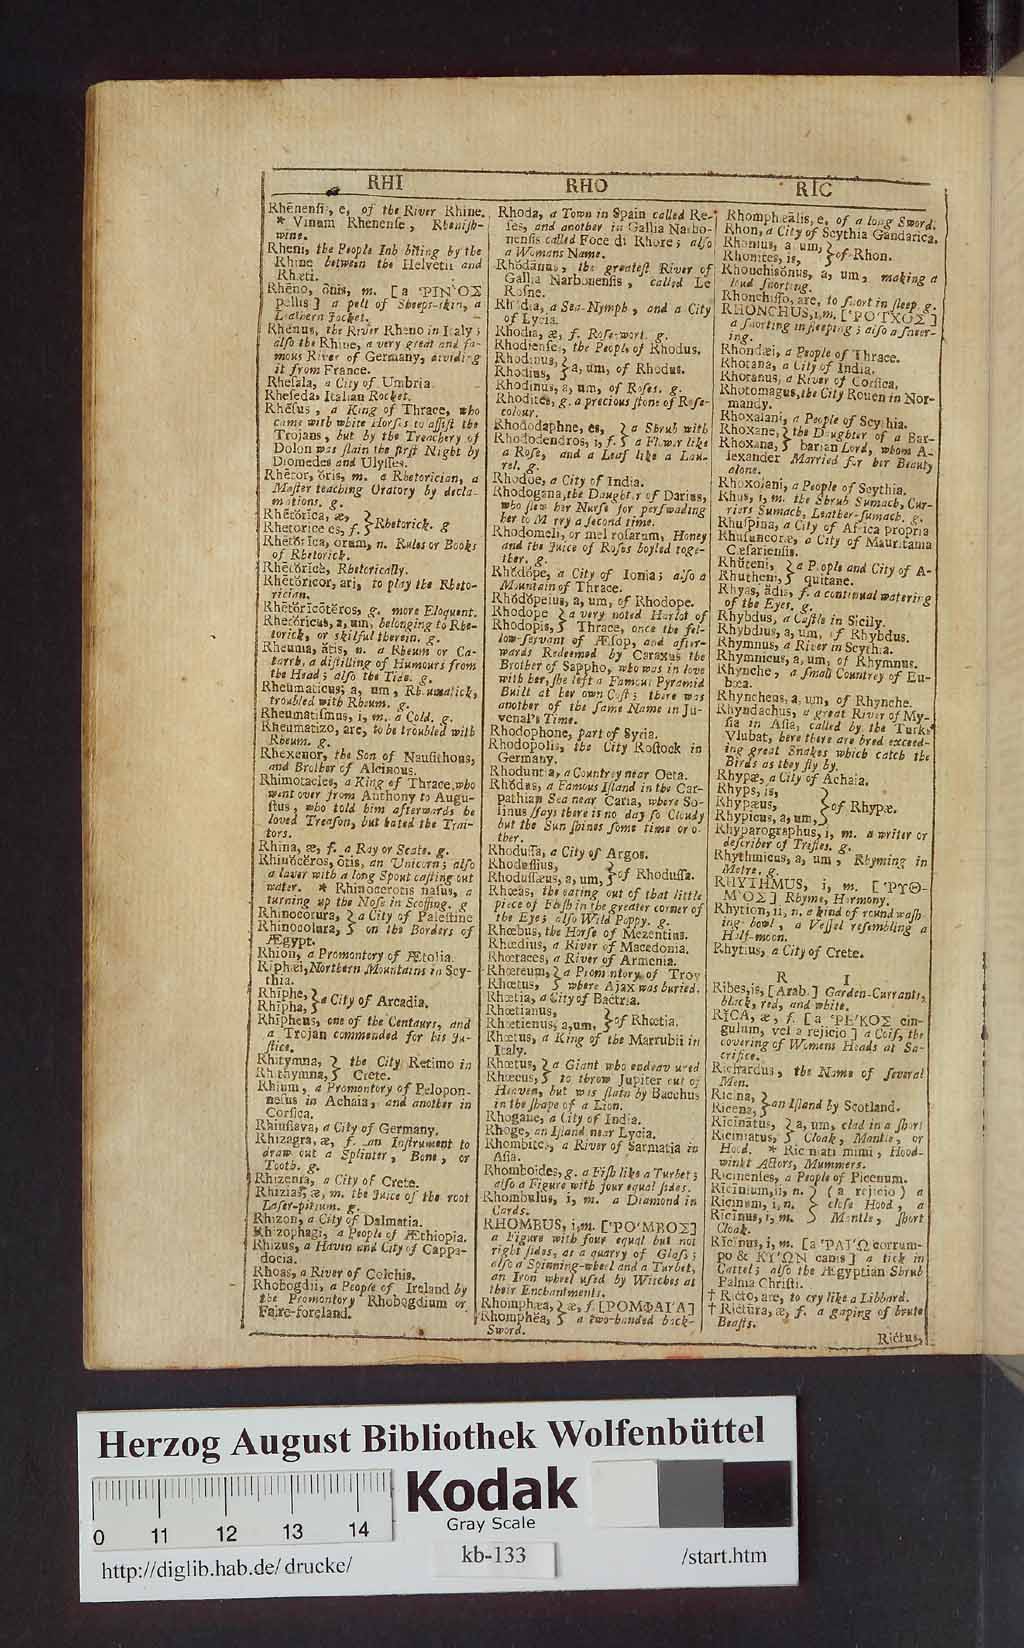 RHI
RHO
RIC
Rhēnensis, e, of the River Rhine.
* Vinam Rhenense, Rhenish-
wine.
Rheni, the People Inhabiting by the
Rhine between the Helvetii and
Rhæti.
Rhēno, ōnis, m. [a ῬΙΝῸΣ
pellis] a pelt of Sheeps-skin, a
Leathern Jacket.
Rhēnus, the River Rheno in Italy;
also the Rhine, a very great and fa-
mous River of Germany, dividing
it from France.
Rhesala, a City of Umbria.
Rheseda, Italian Rocket.
Rhēsus, a King of Thrace, who
came with white Horses to assist the
Trojans, but by the Treachery of
Dolon was slain the first Night by
Diomedes and Ulysses.
Rhētor, ŏris, m. a Rhetorician, a
Master teaching Oratory by decla-
mations. g.
Rhētŏrĭca, æ, }
Rhetorice es, f. } Rhetorick. g
Rhētŏrĭca, orum, n. Rules or Books
of Rhetorick.
Rhētŏrĭcè, Rhetorically.
Rhētŏrĭcor, ari, to play the Rheto-
rician.
Rhētŏrĭcōtĕros, g. more Eloquent.
Rhetŏricus, a, um, belonging to Rhe-
torick, or skilful therein. g.
Rheuma, ătis, n. a Rheum or Ca-
tarrh, a distilling of Humours from
the Head; also the Tide. g.
Rheumaticus, a, um, Rheumatick,
troubled with Rheum. g.
Rheumatismus, i, m. a Cold. g.
Rheumatizo, are, to be troubled with
Rheum. g.
Rhexenor, the Son of Nausithous,
and Brother of Alcinous.
Rhimotacles, a King of Thrace, who
went over from Anthony to Augu-
stus, who told him afterwards he
loved Treason, but hated the Trai-
tors.
Rhina, æ, f. a Ray or Scate. g.
Rhinŏcĕros, ōtis, an Unicorn; also
a laver with a long Spout casting out
water. * Rhinocerotis nasus, a
turning up the Nose in Scoffing. g
Rhinocorura, } a City of Palestine
Rhinocolura, } on the Borders of
Ægypt.
Rhion, a Promontory of Ætolia.
Riphæi, Northern Mountains in Scy-
thia.
Rhīphe, }
Rhīpha, } a City of Arcadia.
Rhīpheus, one of the Centaurs, and
a Trojan commended for his Ju-
stice.
Rhitymna, } the City Retimo in
Rhithymna, } Crete.
Rhium, a Promontory of Pelopon-
nesus in Achaia, and another in
Corsica.
Rhiusiava, a City of Germany.
Rhizagra, æ, f. an Instrument to
draw out a Splinter, Bone, or
Tooth. g.
Rhizenia, a City of Crete.
Rhizias, æ, m. the Juice of the root
Laser-pitium. g.
Rhizon, a City of Dalmatia.
Rhizophagi, a People of Æthiopia.
Rhizus, a Haven and City of Cappa-
docia.
Rhoas, a River of Colchis.
Rhobogdii, a People of Ireland by
the Promontory Rhobogdium or
Faire-foreland.
Rhoda, a Town in Spain called Re-
ses, and another in Gallia Narbo-
nensis called Foce di Rhore; also
a Womans Name.
Rhŏdănus, the greatest River of
Gallia Narbonensis, called Le
Rosne.
Rhodia, a Sea-Nymph, and a City
of Lycia.
Rhodia, æ, f. Rose-wort. g.
Rhodienses, the People of Rhodus.
Rhodinus, }
Rhodius, } a, um, of Rhodus.
Rhodinus, a, um, of Roses. g.
Rhodites, g. a precious stone of Rose-
colour.
Rhŏdodaphne, es, } a Shrub with
Rhododendros, i, f. } a Flower like
a Rose, and a Leaf like a Lau-
rel. g.
Rhodoe, a City of India.
Rhodogana, the Daughter of Darius,
who slew her Nurse for perswading
her to Marry a second time.
Rhodomeli, or mel rosarum, Honey
and the Juice of Roses boyled toge-
ther. g.
Rhŏdŏpe, a City of Ionia; also a
Mountain of Thrace.
Rhŏdŏpeius, a, um, of Rhodope.
Rhodope } a very noted Harlot of
Rhodopis, } Thrace, once the fel-
low-servant of Æsop, and after-
wards Redeemed by Caraxus the
Brother of Sappho, who was in love
with her, she left a Famous Pyramid
Built at her own Cost; there was
another of the same Name in Ju-
venal's Time.
Rhodophone, part of Syria.
Rhodopolis, the City Rostock in
Germany.
Rhoduntia, a Countrey near Oeta.
Rhŏdus, a Famous Island in the Car-
pathian Sea near Caria, where So-
linus says there is no day so Cloudy
but the Sun shines some time or o-
ther.
Rhodussa, a City of Argos.
Rhodussius, }
Rhodussæus, a, um, } of Rhodussa.
Rhœas, the eating out of that little
piece of Flesh in the greater corner of
the Eye; also Wild Poppy. g.
Rhœbus, the Horse of Mezentius.
Rhœdius, a River of Macedonia.
Rhœtaces, a River of Armenia.
Rhœteum, } a Promontory of Troy
Rhœtus, } where Ajax was buried.
Rhœtia, a City of Bactria.
Rhœtianus, }
Rhœtienus, a, um, } of Rhœtia.
Rhœtus, a King of the Marrubii in
Italy.
Rhœtus, } a Giant who endeavoured
Rhœcus, } to throw Jupiter out of
Heaven, but was slain by Bacchus
in the shape of a Lion.
Rhogane, a City of India.
Rhoge, an Island near Lycia.
Rhombites, a River of Sarmatia in
Asia.
Rhomboides, g. a Fish like a Turbet;
also a Figure with four equal sides.
Rhombulus, i, m. a Diamond in
Cards.
RHOMBUS, i, m. [ῬΟΜΒΟΣ]
a Figure with four equal but not
right sides, as a quarry of Glass;
also a Spinning-wheel and a Turbet,
an Iron wheel used by Witches at
their Enchantments.
Rhomphæa, } æ, f. [ΡΟΜΦΑΙΑ]
Rhomphēa, } a two-handed back-
Sword.
Rhomphæālis, e, of a long Sword.
Rhon, a City of Scythia Gandarica.
Rhonius, a, um, }
Rhonites, is, } of Rhon.
Rhonchisŏnus, a, um, making a
loud snorting.
Rhonchisso, are, to snort in sleep. g.
RHONCHUS, i, m. [ῬΌΓΧΟΣ]
a snorting in sleeping; also a sneer-
ing.
Rhondæi, a People of Thrace.
Rhotana, a City of India.
Rhotanus, a River of Corsica.
Rhotomagus, the City Rouen in Nor-
mandy.
Rhoxalani, a People of Scythia.
Rhoxane, } the Daughter of a Bar-
Rhoxana, } barian Lord, whom A-
lexander Married for her Beauty
alone.
Rhoxolani, a People of Scythia.
Rhus, i, m. the Shrub Sumach, Cur-
riers Sumach, Leather-sumach. g.
Rhuspina, a City of Africa propria
Rhusuncoræ, a City of Mauritania
Cæsariensis.
Rhŭteni, } a People and City of A-
Rhutheni, } quitane.
Rhyas, ădis, f. a continual watering
of the Eyes. g.
Rhybdus, a Castle in Sicily.
Rhybdius, a, um, of Rhybdus.
Rhymnus, a River in Scythia.
Rhymnicus, a, um, of Rhymnus.
Rhynche, a small Countrey of Eu-
bœa.
Rhyncheus, a, um, of Rhynche.
Rhyndachus, a great River of My-
sia in Asia, called by the Turks
Vlubat, here there are bred exceed-
ing great Snakes which catch the
Birds as they fly by.
Rhypæ, a City of Achaia.
Rhyps, is, }
Rhypæus, } of Rhypæ.
Rhypicus, a, um, }
Rhyparographus, i, m. a writer or
describer of Trifles. g.
Rhythmicus, a, um, Rhyming in
Metre. g.
RHYTHMUS, i, m. [ῬΥΘ-
ΜῸΣ] Rhyme, Harmony.
Rhytion, ii, n. a kind of round wash-
ing-bowl, a Vessel resembling a
Half-moon.
Rhytius, a City of Crete.
R I
Ribes, is, [Arab.] Garden-Currants,
black, red, and white.
RĪCA, æ, f. [a ῬΕΚΟΣ cin-
gulum, vel a rejicio] a Coif, the
covering of Womens Heads at Sa-
crifice.
Richardus, the Name of several
Men.
Ricina, }
Ricena, } an Island by Scotland.
Ricīnātus, } a, um, clad in a short
Riciniatus, } Cloak, Mantle, or
Hood. * Riciniati mimi, Hood-
winkt Actors, Mummers.
Ricinenses, a People of Picenum.
Ricīnium, ii, n. } (a rejicio) a
Ricinum, i, n. } close Hood, a
Ricīnus, i, m. } Mantle, short
Cloak.
Ricinus, i, m. [a ῬΑΙΏ corrum-
po & ΚΥΏΝ canis] a tick in
Cattel; also the Ægyptian Shrub
Palma Christi.
† Ricto, are, to cry like a Libbard.
† Rictūra, æ, f. a gaping of brute
Beasts.
Rictus,
Herzog August Bibliothek Wolfenbüttel
Kodak
Gray Scale
0 11 12 13 14
http://diglib.hab.de/drucke/
kb-133
/start.htm